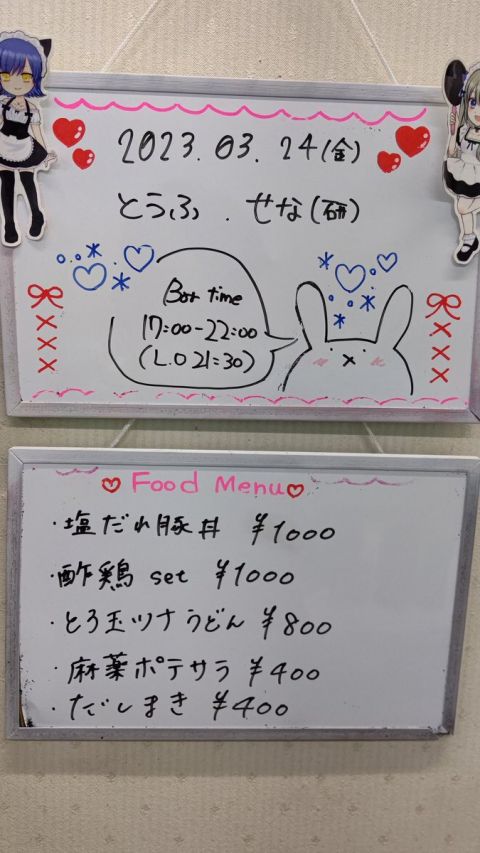 2023.03.24(金)
とうふ.せな(研)
Bar time
17:00-22:00
(L.O 21:30)
Food Menu
・塩だれ豚丼 ¥1000
・酢鶏 set ¥1000
・とろ玉ツナうどん ¥800
・麻薬ポテサラ ¥400
・だしまき ¥400